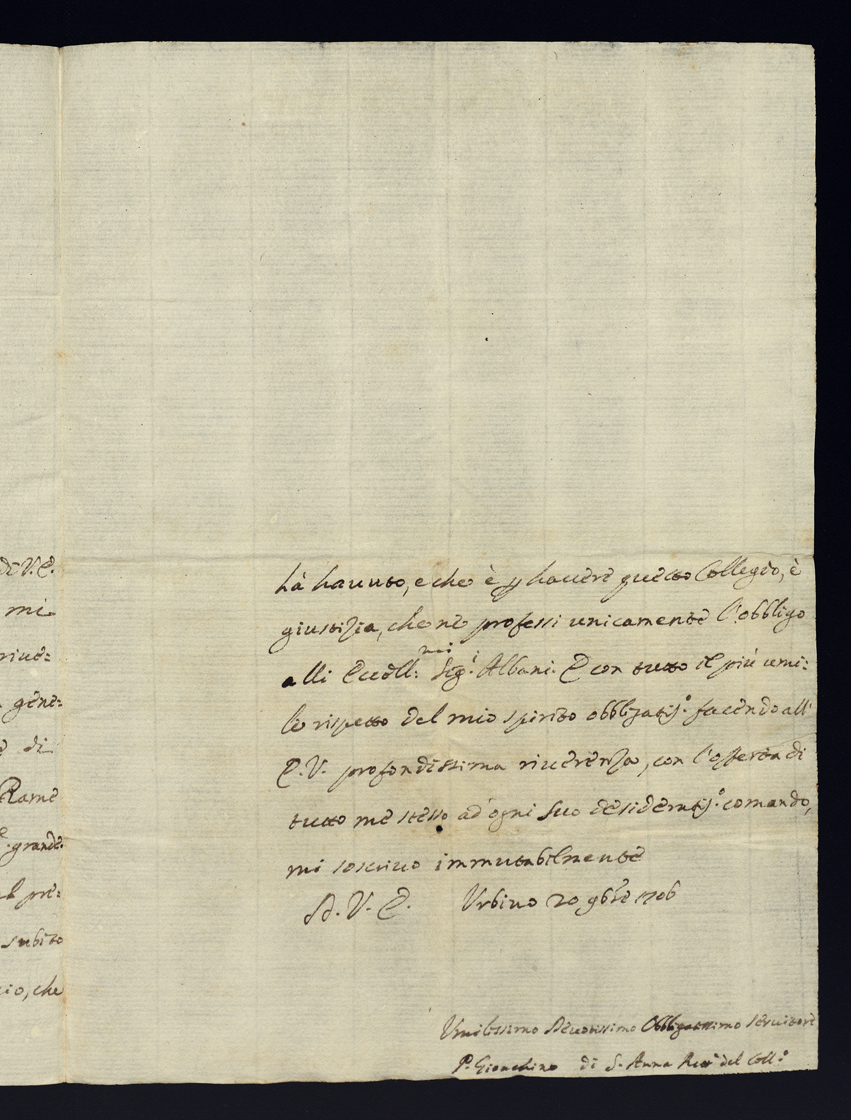 di V. E.
mi
rive=
gene=
di
Rame
grande
pre=
subito
io, che
hà havuto, e che è p havere questo Collegio, è
giustizia, che ne professi unicamente l'obbligo
alli Eccell:mi Sig:i Albani. E con tutto il più umi=
le rispetto del mio spirito obbligatis:o facendo all'
E. V. profondissima riverenza, con l'offerta di
tutto me stesso ad ogni suo desideratis:o comando,
mi soscrivo immutabilmente
D. V. E. Urbino 20 9bre 1706
Umilissimo Devotissimo Obbligatissimo Servitore
P. Gioachino di S. Anna Rett.e del Coll:o